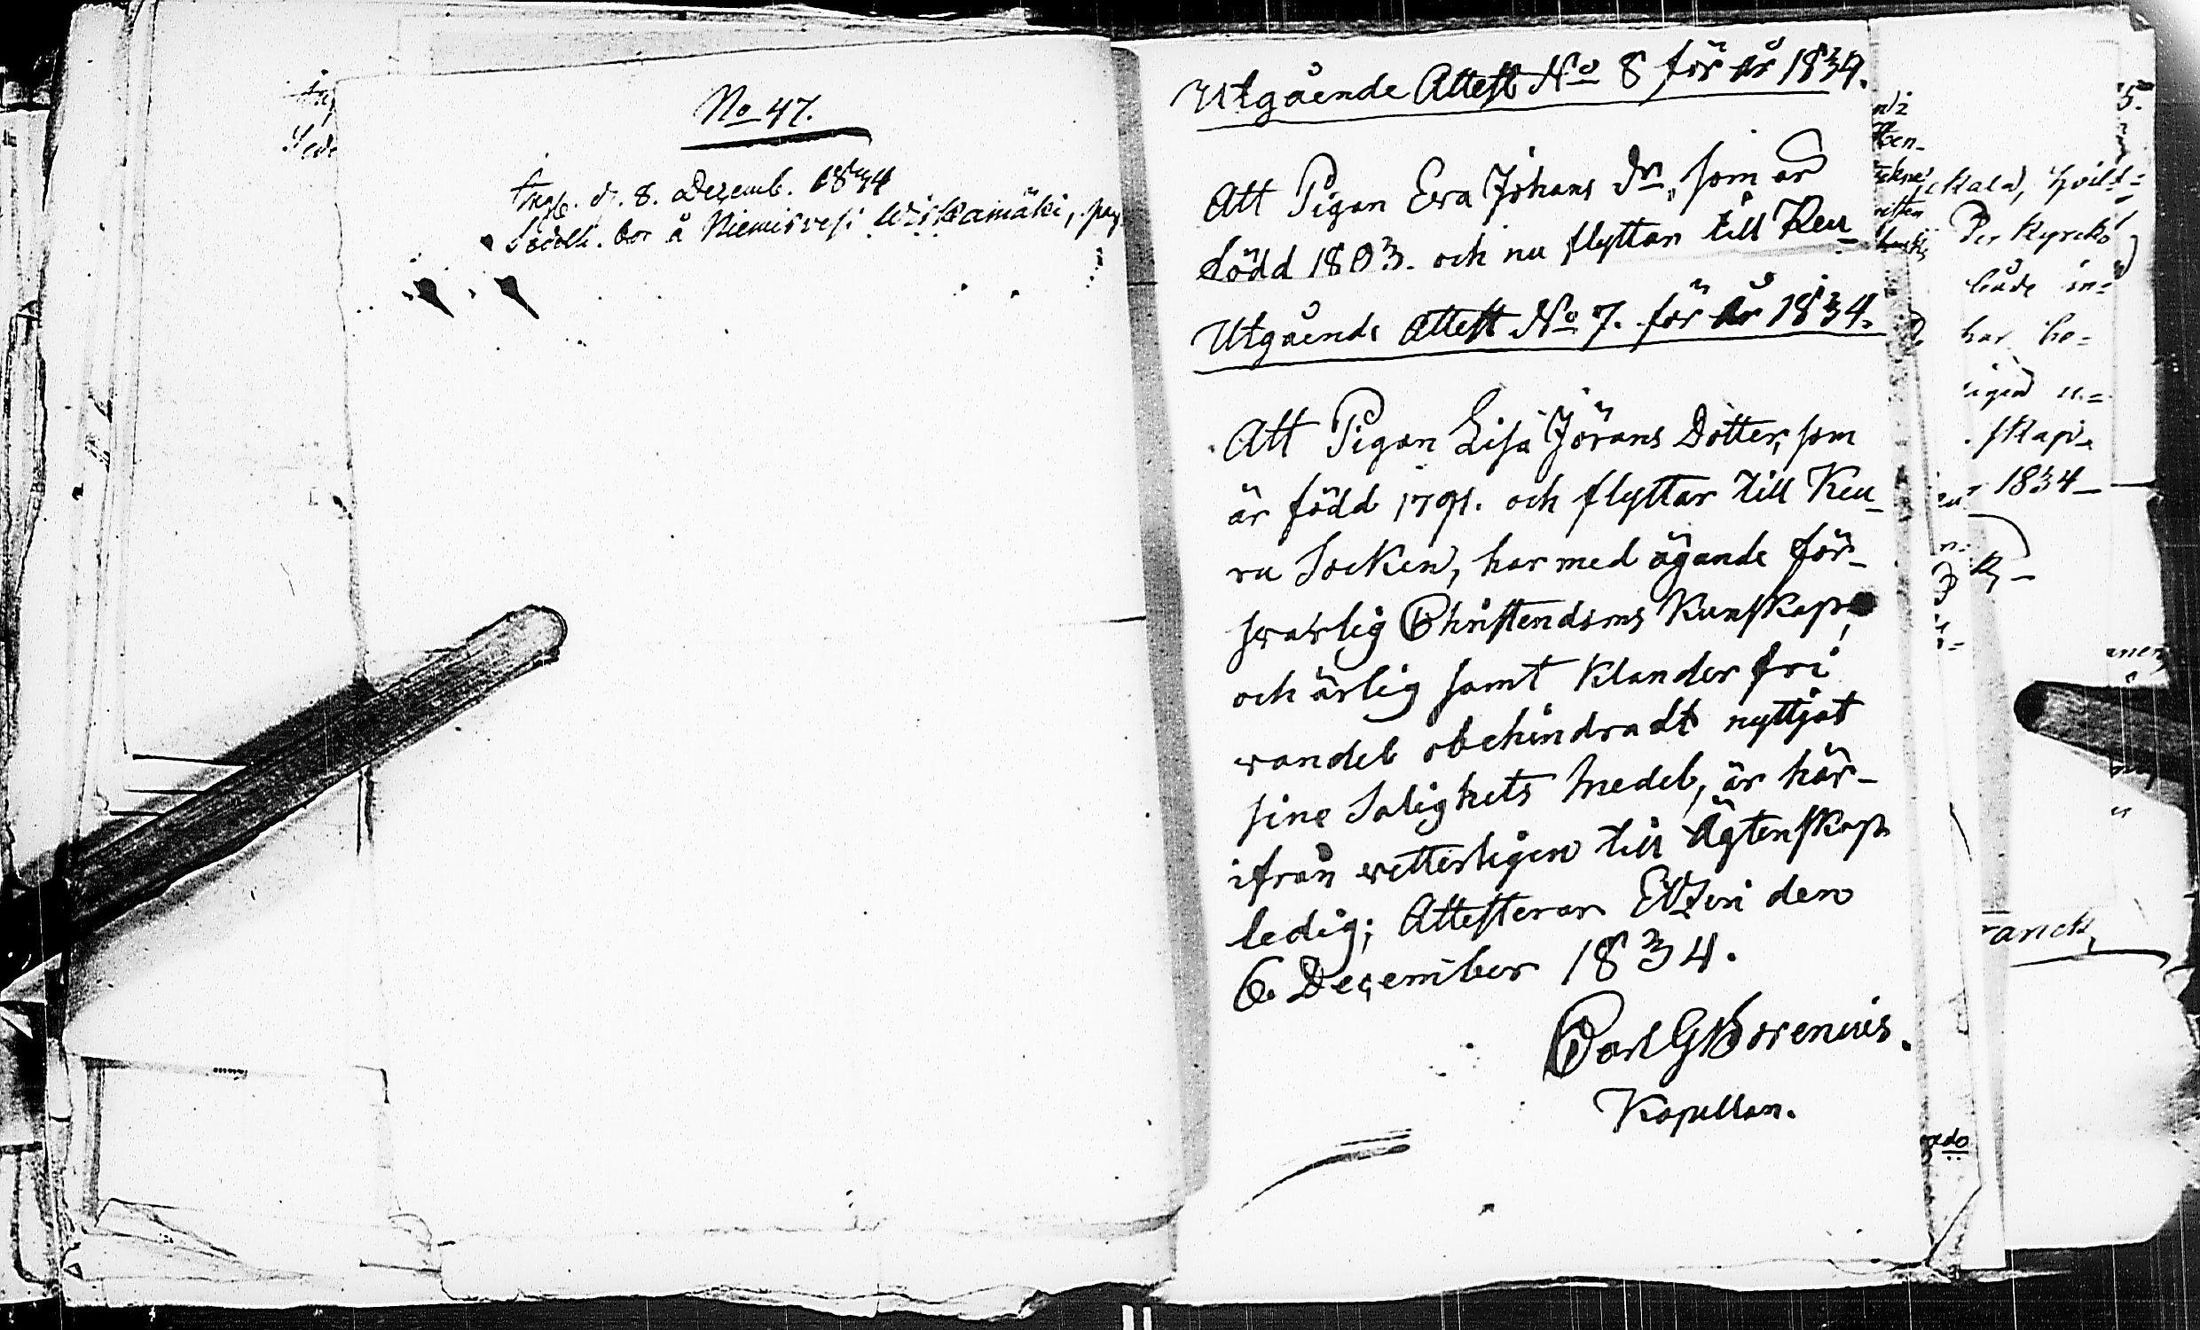 No 47.
Ingb. d. 8. Decemb. 1834
bor å Niemisvesi Wiskamäki, pag
Utgående Attest No 8 för år 1834.
Att Pigan Eva Johans Dr, som är
född 1803. och nu flyttar till Keu_
Utgående Attest No 7. för år 1834.
Att Pigan Lisa Jörans Dotter, som
är född 1791. och flyttar till Keu_
ru Socken, har med ägande för_
swarlig Christendoms Kunskap,
och ärlig samt klander fri
wandel obehindradt nyttjat
sine Salighets medel, är här_
ifrån wetterligen till Ägtenskap
ledig; Attesterar Etzeri den
6 December 1834.
Carl G Borenius.
Kapellan.
5.
kald,
Per Kyrck
både in=
har be=
igen u=
skap
1834_
ranck